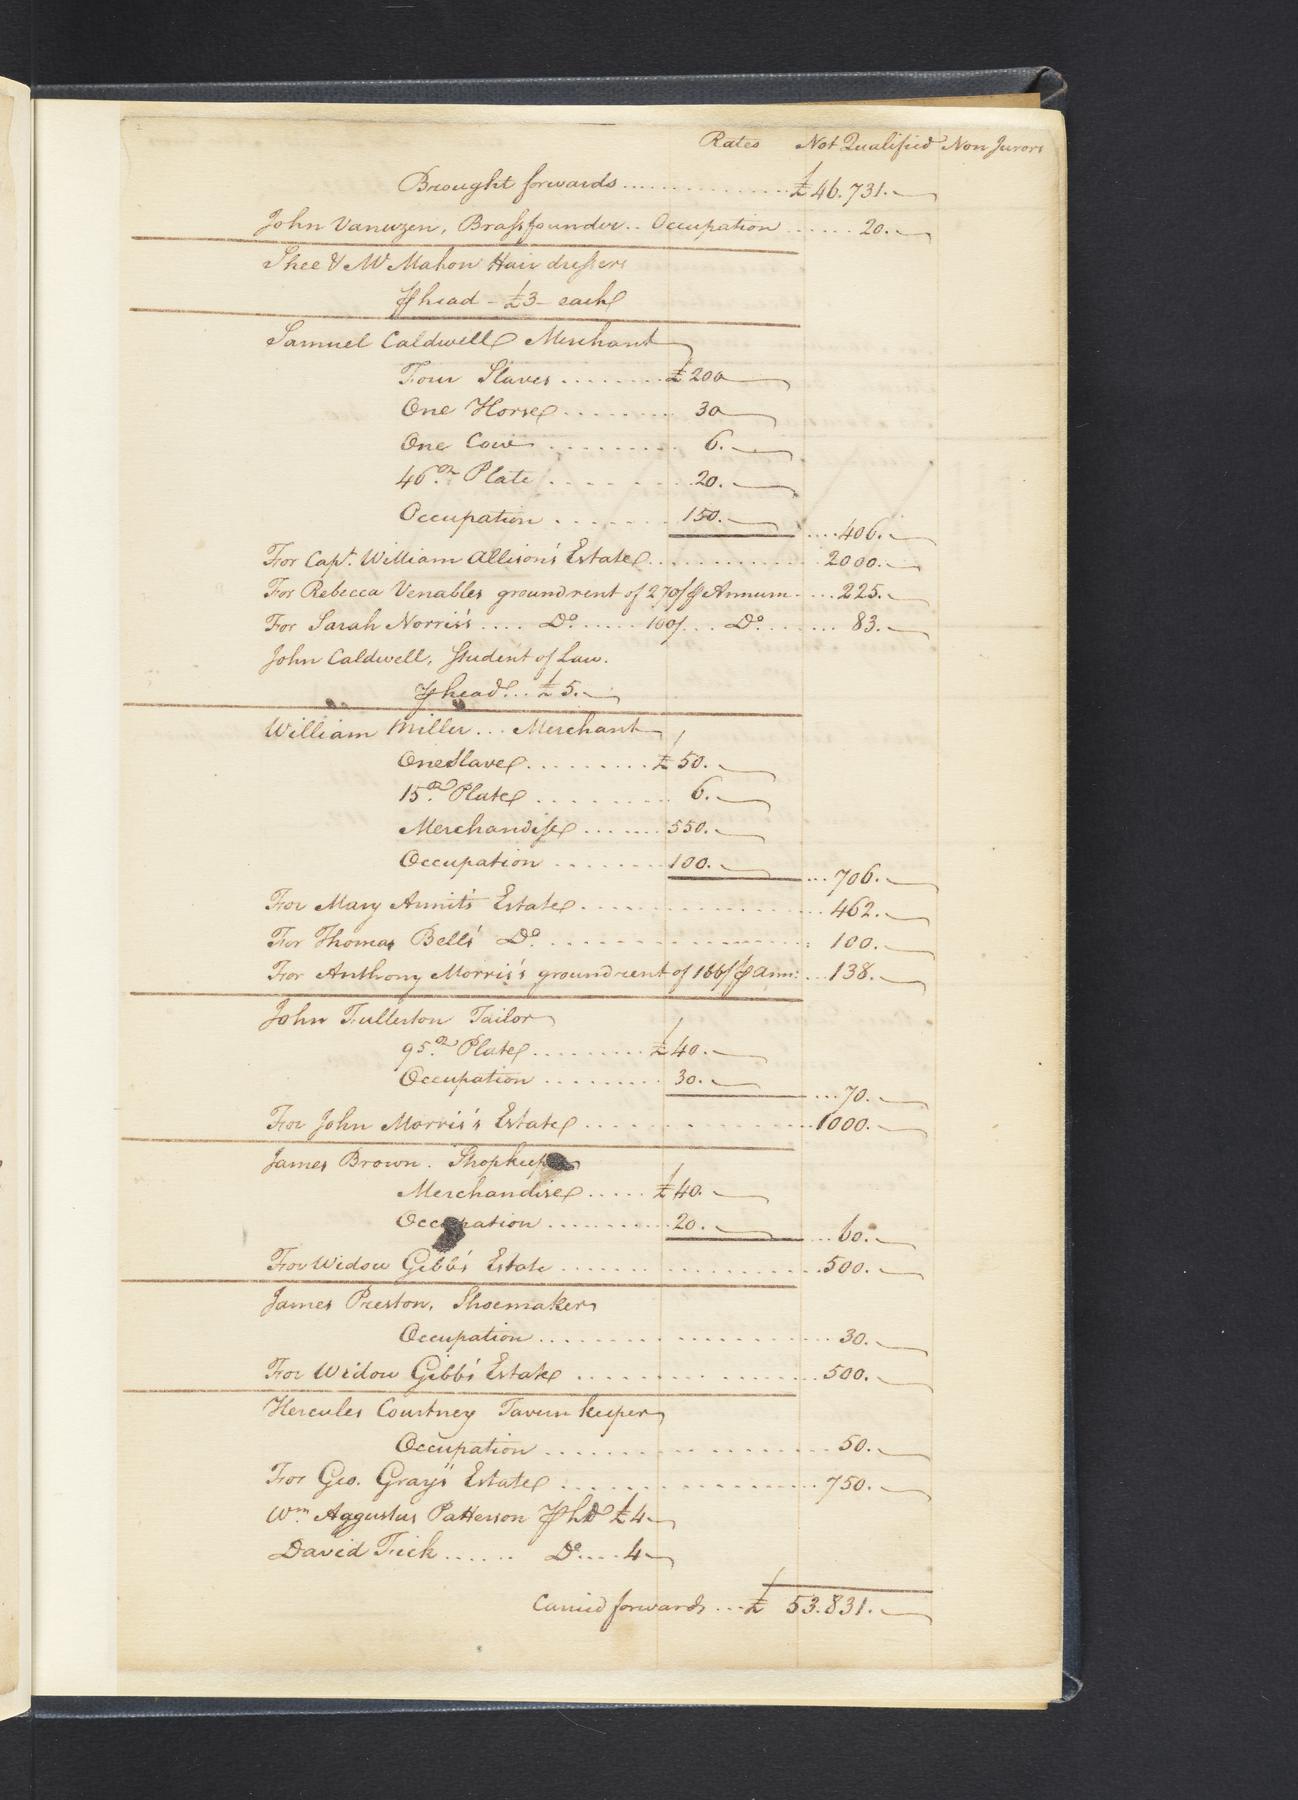 Rates Not Qualified Non Jurors
Brought forwards ............... £46.731.
John Vanuzen, Brassfounder .. Occupation ...... 20.
Shee & McMahon Hair dressers
⅌ head - £3 - each
Samuel Caldwell Merchant
Four Slaves ........ £200
One Horse ........ 30
One Cow .......... 6.
46 oz. Plate ........ 20.
Occupation ........ 150. .... 406.
For Capt. William Allison's Estate ............ 2000.
For Rebecca Venables groundrent of 270/ ⅌ Annum .... 225.
For Sarah Norris's .... Do. ..... 100/ ... Do. ....... 83.
John Caldwell, Student of Law.
⅌ head ... £5.
William Miller ... Merchant
One Slave ......... £50.
15 oz. Plate ......... 6.
Merchandise ....... 550.
Occupation ........ 100. ... 706.
For Mary Annit's Estate ................ 462.
For Thomas Bell's Do. ................ 100.
For Anthony Morris's groundrent of 166/ ⅌ Ann: ... 138.
John Fullerton Tailor
95 oz. Plate ......... £40.
Occupation ......... 30. ... 70.
For John Morris's Estate .............. 1000.
James Brown. Shopkeeper
Merchandise ..... £40.
Occupation ......... 20. ... 60.
For Widow Gibb's Estate ................. 500.
James Preston, Shoemaker
Occupation .................. 30.
For Widow Gibb's Estate ................ 500.
Hercules Courtney Tavern keeper
Occupation .................. 50.
For Geo. Gray's Estate ................ 750.
Wm. Aggustus Patterson ⅌ hd £4
David Frick ...... Do .... 4
Carried forwards ... £ 53.831.